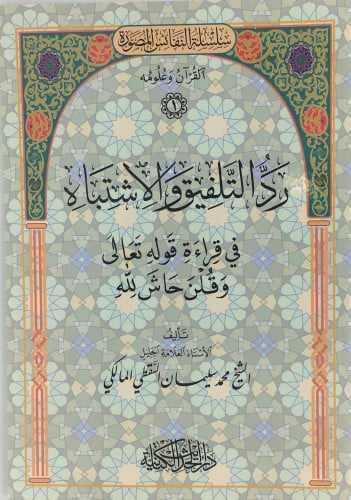 سلسلة النفائس المصورة
القرآن وعلومه
١
رد التلفيق والاشتباه
في قراءة قوله تعالى
وقلن حاش لله
تأليف
الأستاذ العلامة الجليل
الشيخ محمد سليمان السقطي المالكي